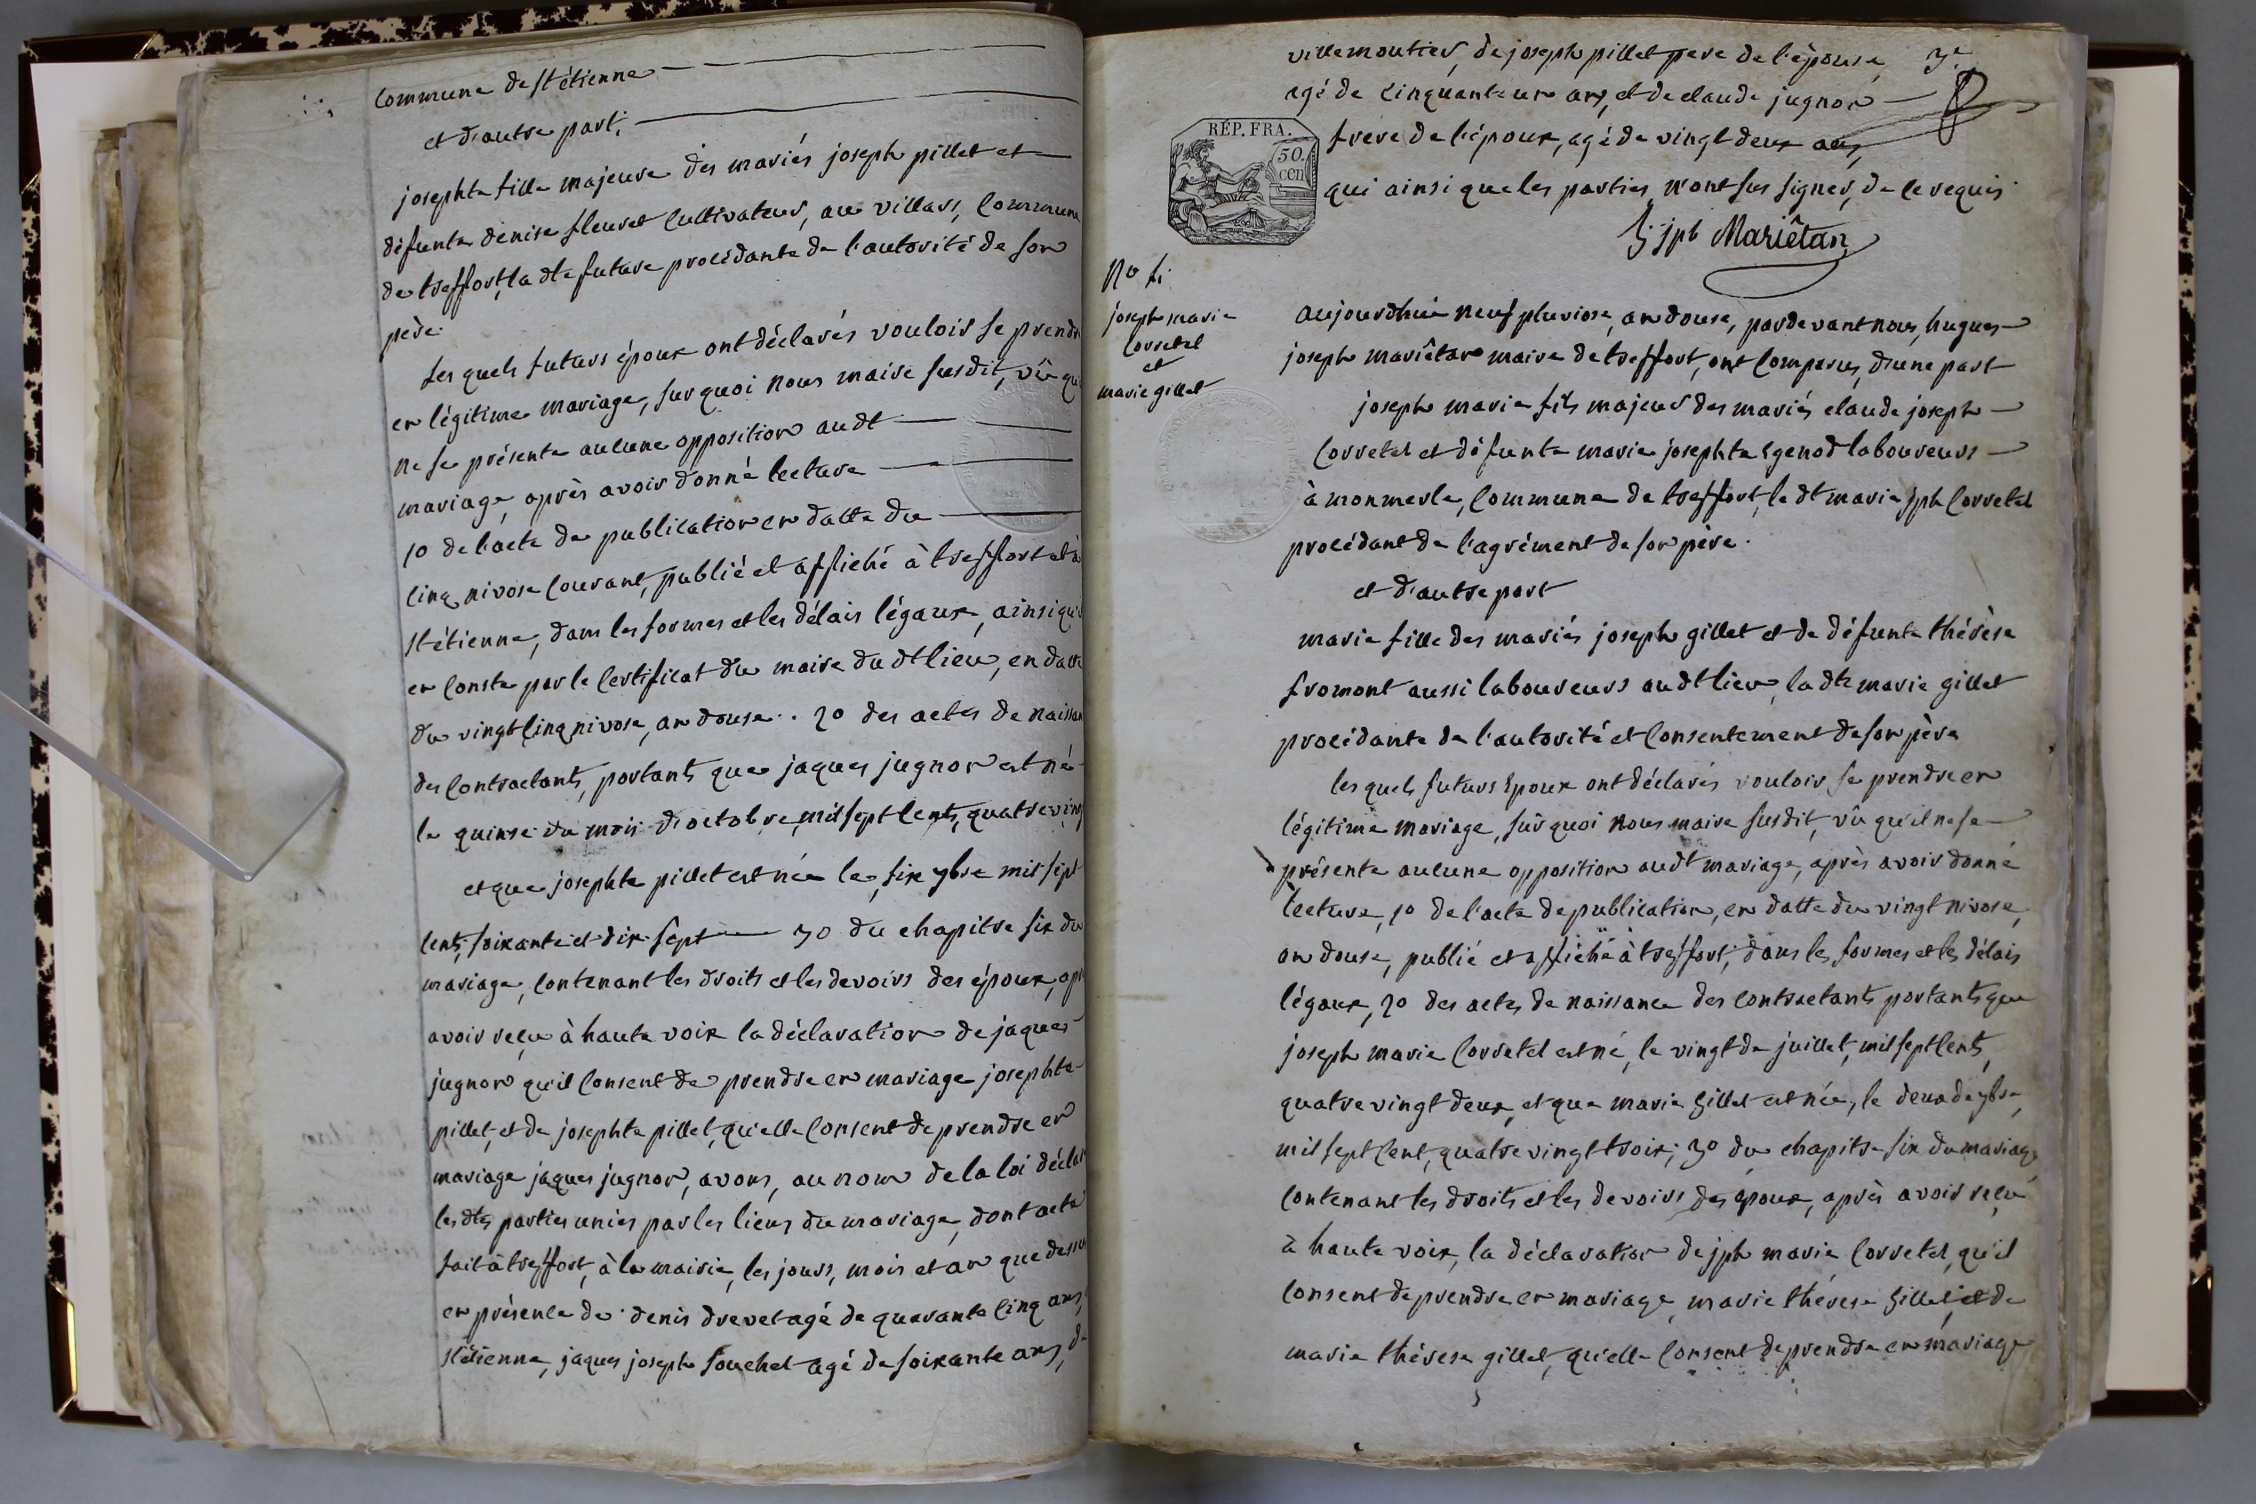 Commune de st étienne
et d'autre part,
josephte fille majeure des mariés joseph pillet et
défunte denise fleuret Cultivateurs, au villars, Commune
de treffort, la dte future procédante de l'autorité de son
père.
Les quels futurs époux ont déclarés vouloir se prendre
en légitime mariage, sur quoi nous maire susdit, vû qu'il
ne se présente aucune opposition audt
mariage, après avoir donné lecture
1o de l'acte de publication en datte du
cinq nivose Courant, publié et affiché à treffort et à
st étienne, dans les formes et les délais légaux, ainsi qu'il
en conste par le Certificat du maire du dt lieu, en datte
du vingt cinq nivose, an douse. 2o des actes de naissance
des Contractants, portants que jaques jugnon est né
le quinse du mois d'octobre, mil sept cents, quatre vingt
et que josephte pillet est née le six 9bre mil sept
cents, soixante et dix sept 3o du chapitre six du
mariage, contenant les droits et les devoirs des époux, après
avoir reçu à haute voix la déclaration de jaques
jugnon qu'il consent de prendre en mariage josephte
pillet, et de josephte pillet, qu'elle consent de prendre en
mariage jaques jugnon, avons, au nom de la loi déclaré
les dtes parties unies par les liens du mariage, dont acte
fait à treffort, à la mairie, les jours, mois et an que dessus
en présence de denis drevet agé de quarante cinq ans, de
st étienne, jaques joseph souchet agé de soixante ans, de
villemoutier, de joseph pillet pere de l'épouse, 3e
agé de cinquanteun ans, et de claude jugnon
frere de l'époux, agé de vingt deux ans,
RÉP. FRA.
50.
cen
qui ainsi que les parties n'ont sus signer, de ce requis.
h jph Mariêtan
No 4.
joseph marie
Corretel
et
marie gillet
aujourdhui neuf pluviose, an douse, pardevant nous, hugues
joseph mariêtan maire de treffort, ont comparus, d'une part
joseph marie fils majeur des mariés claude joseph
Corretel et défunte marie josephte Genod laboureurs
à monmerle, Commune de treffort, le dt marie jph Corretel
procédant de l'agrément de son père.
et d'autre part
marie fille des mariés joseph gillet et de défunte thérèse
fromont aussi laboureurs audt lieu, la dte marie gillet
procédante de l'autorité et consentement de son père
les quels futurs époux ont déclarés vouloir se prendre en
légitime mariage, sur quoi nous maire susdit, vû qu'il ne se
présente aucune opposition audt mariage, après avoir donné
lecture, 1o de l'acte de publication, en datte du vingt nivose,
an douse, publié et affiché à treffort, dans les formes et les délais
légaux, 2o des actes de naissance des contractants portants que
joseph marie Corretel est né, le vingt de juillet, mil sept cents,
quatre vingt deux, et que marie gillet est née, le deux de 9bre,
mil sept cent, quatre vingt trois, 3o du chapitre six du mariage
contenant les droits et les devoirs des époux, après avoir reçu
à haute voix, la déclaration de jph marie Corretel, qu'il
consent de prendre en mariage, marie thérese gillet, et de
marie thérese gillet, qu'elle consent de prendre en mariage